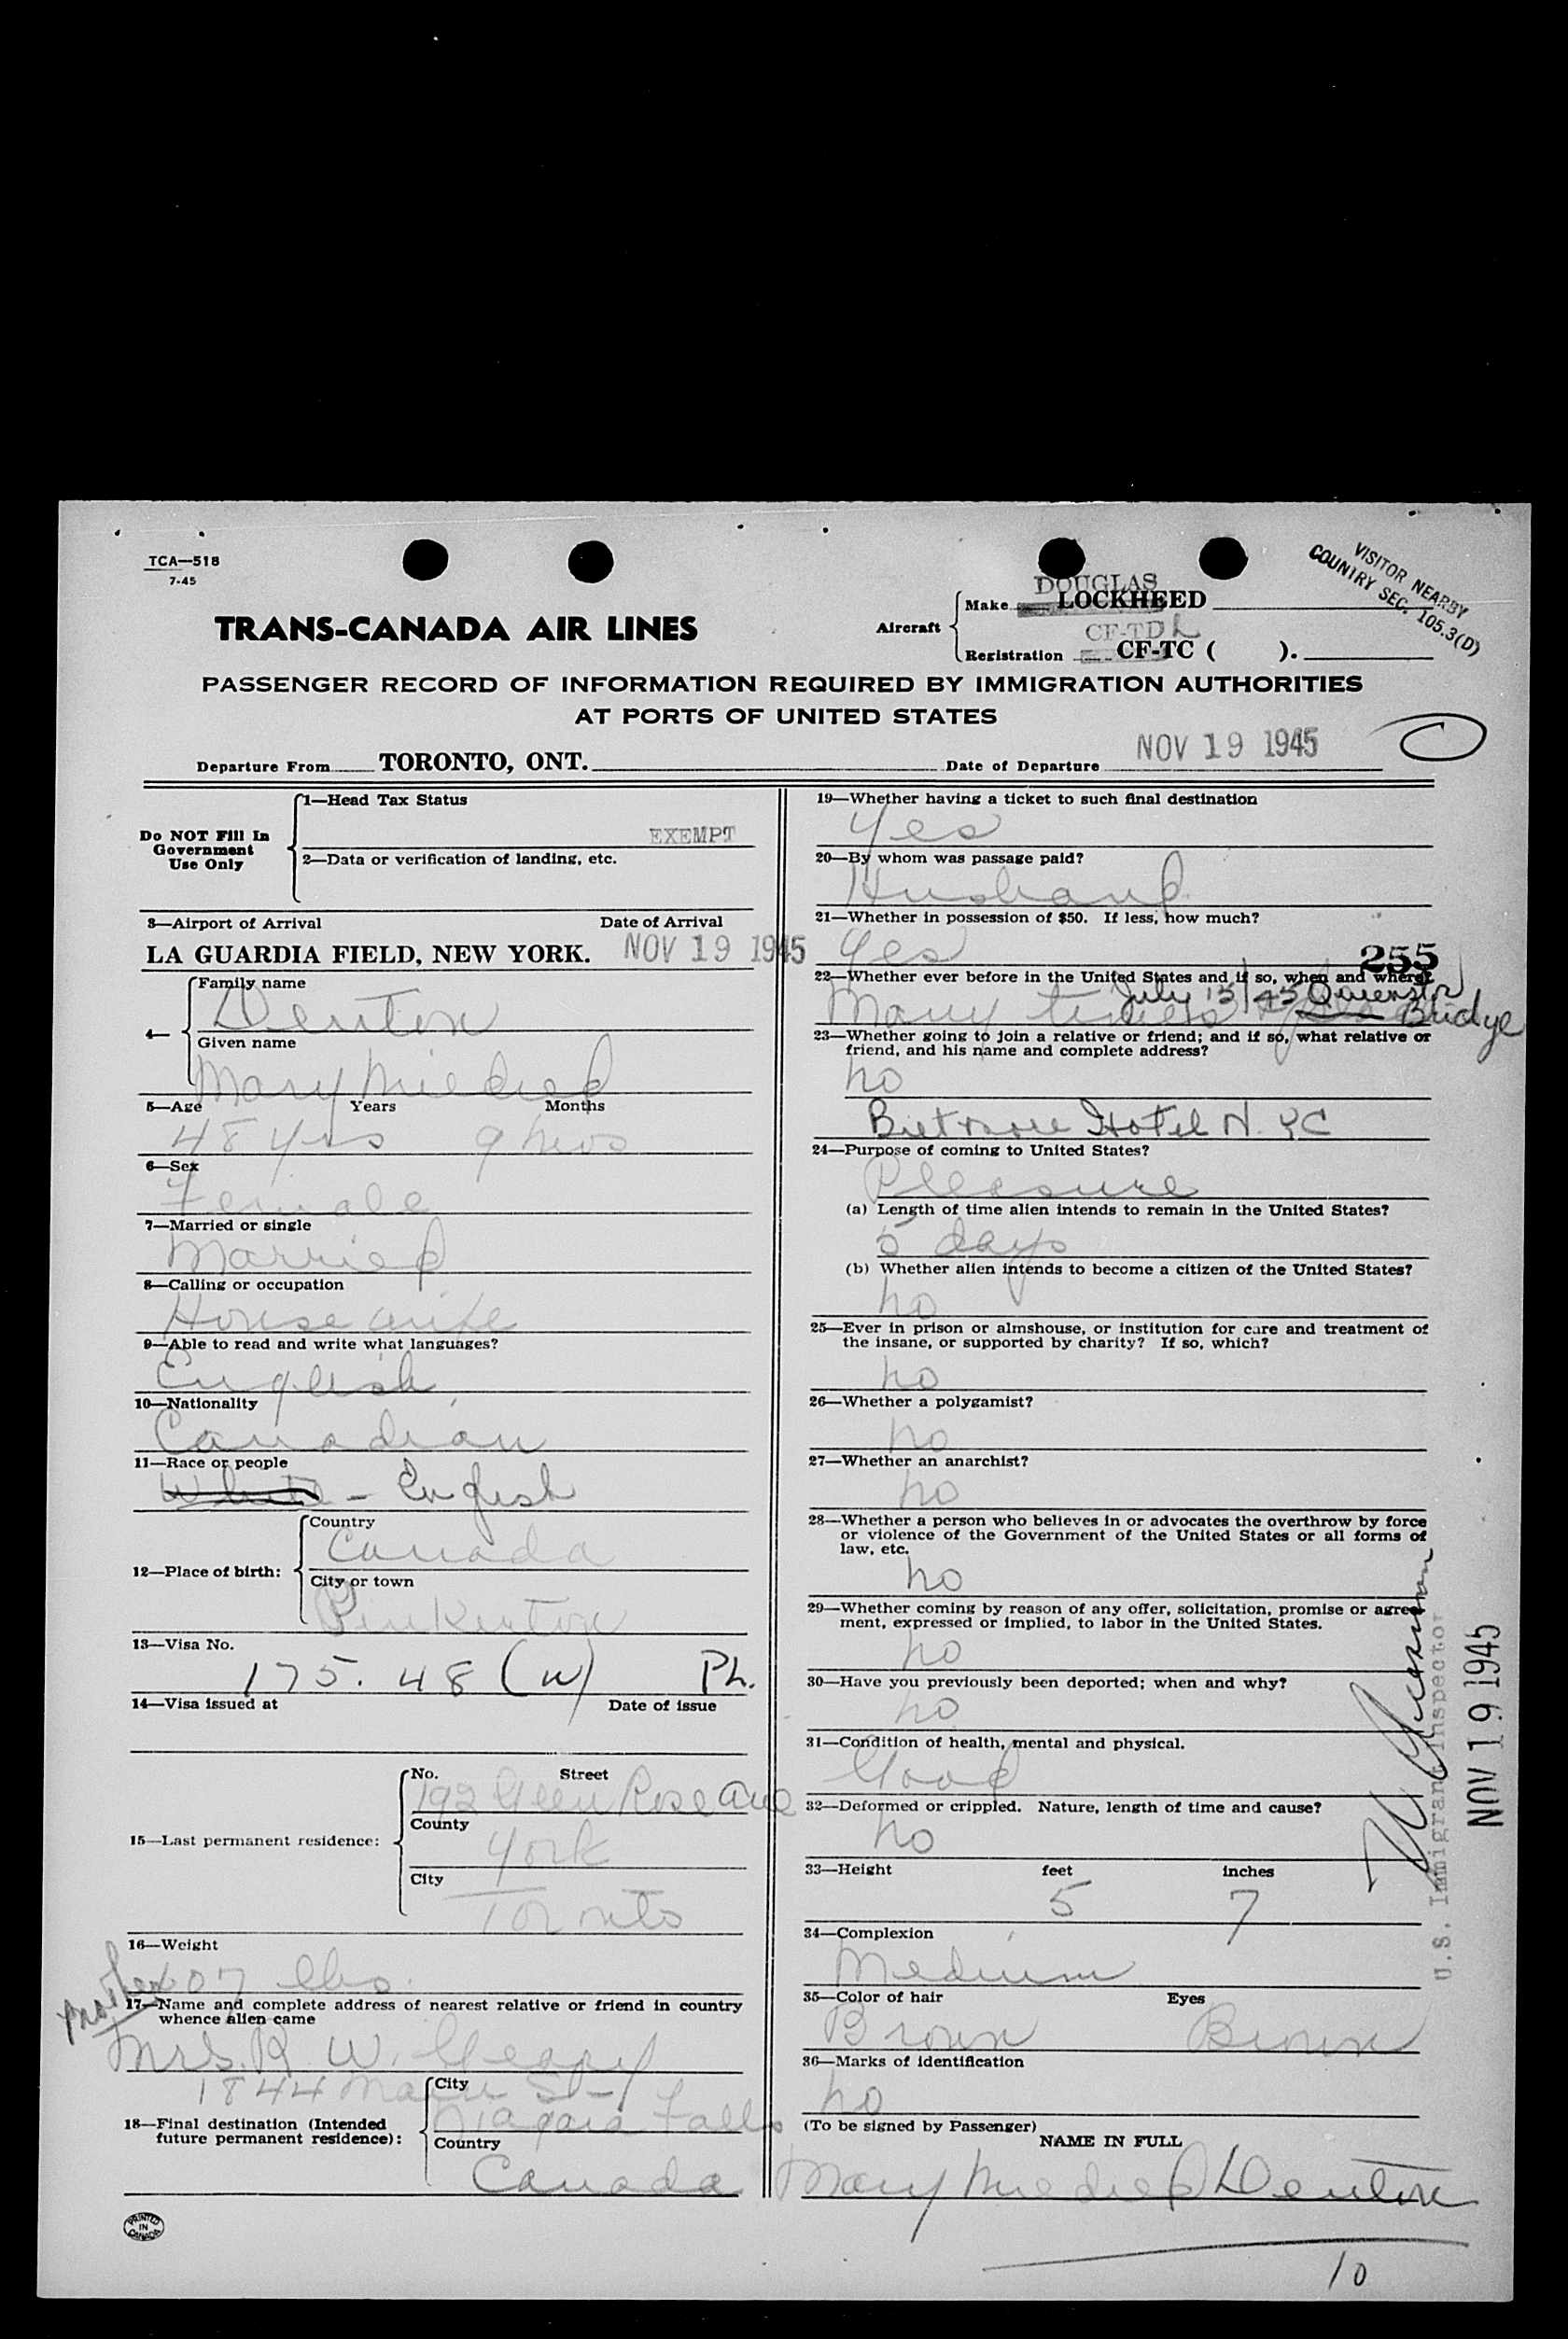 TCA—518
7-45
VISITOR NEARBY
COUNTRY SEC. 105.3(D)
TRANS-CANADA AIR LINES
Aircraft
Make
DOUGLAS
LOCKHEED
CF-TDL
Registration CF-TC ( ).
PASSENGER RECORD OF INFORMATION REQUIRED BY IMMIGRATION AUTHORITIES
AT PORTS OF UNITED STATES
Departure From TORONTO, ONT.
Date of Departure NOV 19 1945
Do NOT Fill In
Government
Use Only
1—Head Tax Status
EXEMPT
2—Data or verification of landing, etc.
3—Airport of Arrival Date of Arrival
LA GUARDIA FIELD, NEW YORK. NOV 19 1945
4—
Family name
Denton
Given name
Mary Mildred
5—Age Years Months
48 yrs 9 mos
6—Sex
Female
7—Married or single
Married
8—Calling or occupation
Housewife
9—Able to read and write what languages?
English
10—Nationality
Canadian
11—Race or people
White - English
12—Place of birth:
Country
Canada
City or town
Pinkerton
13—Visa No.
175.48 (w) Ph.
14—Visa issued at Date of issue
15—Last permanent residence:
No. Street
192 Glen Rose Ave
County
York
City
Toronto
16—Weight
07 lbs.
Mother
17—Name and complete address of nearest relative or friend in country
whence alien came
Mrs. R. W. Geary
1844 Main St-
18—Final destination (Intended
future permanent residence):
City
Niagara Falls
Country
Canada
PRINTED
IN
CANADA
19—Whether having a ticket to such final destination
Yes
20—By whom was passage paid?
Husband
21—Whether in possession of $50. If less, how much?
Yes
255
22—Whether ever before in the United States and if so, when and where?
July 15/45 Queenston
Many times
Bridge
23—Whether going to join a relative or friend; and if so, what relative or
friend, and his name and complete address?
no
Biltmore Hotel N.YC
24—Purpose of coming to United States?
Pleasure
(a) Length of time alien intends to remain in the United States?
5 days
(b) Whether alien intends to become a citizen of the United States?
no
25—Ever in prison or almshouse, or institution for care and treatment of
the insane, or supported by charity? If so, which?
no
26—Whether a polygamist?
no
27—Whether an anarchist?
no
28—Whether a person who believes in or advocates the overthrow by force
or violence of the Government of the United States or all forms of
law, etc.
no
29—Whether coming by reason of any offer, solicitation, promise or agree-
ment, expressed or implied, to labor in the United States.
no
30—Have you previously been deported; when and why?
no
31—Condition of health, mental and physical.
Good
32—Deformed or crippled. Nature, length of time and cause?
no
33—Height feet inches
5 7
34—Complexion
Medium
35—Color of hair Eyes
Brown Brown
36—Marks of identification
no
(To be signed by Passenger)
NAME IN FULL
Mary Mildred Denton
10
U.S. Immigrant Inspector
NOV 19 1945